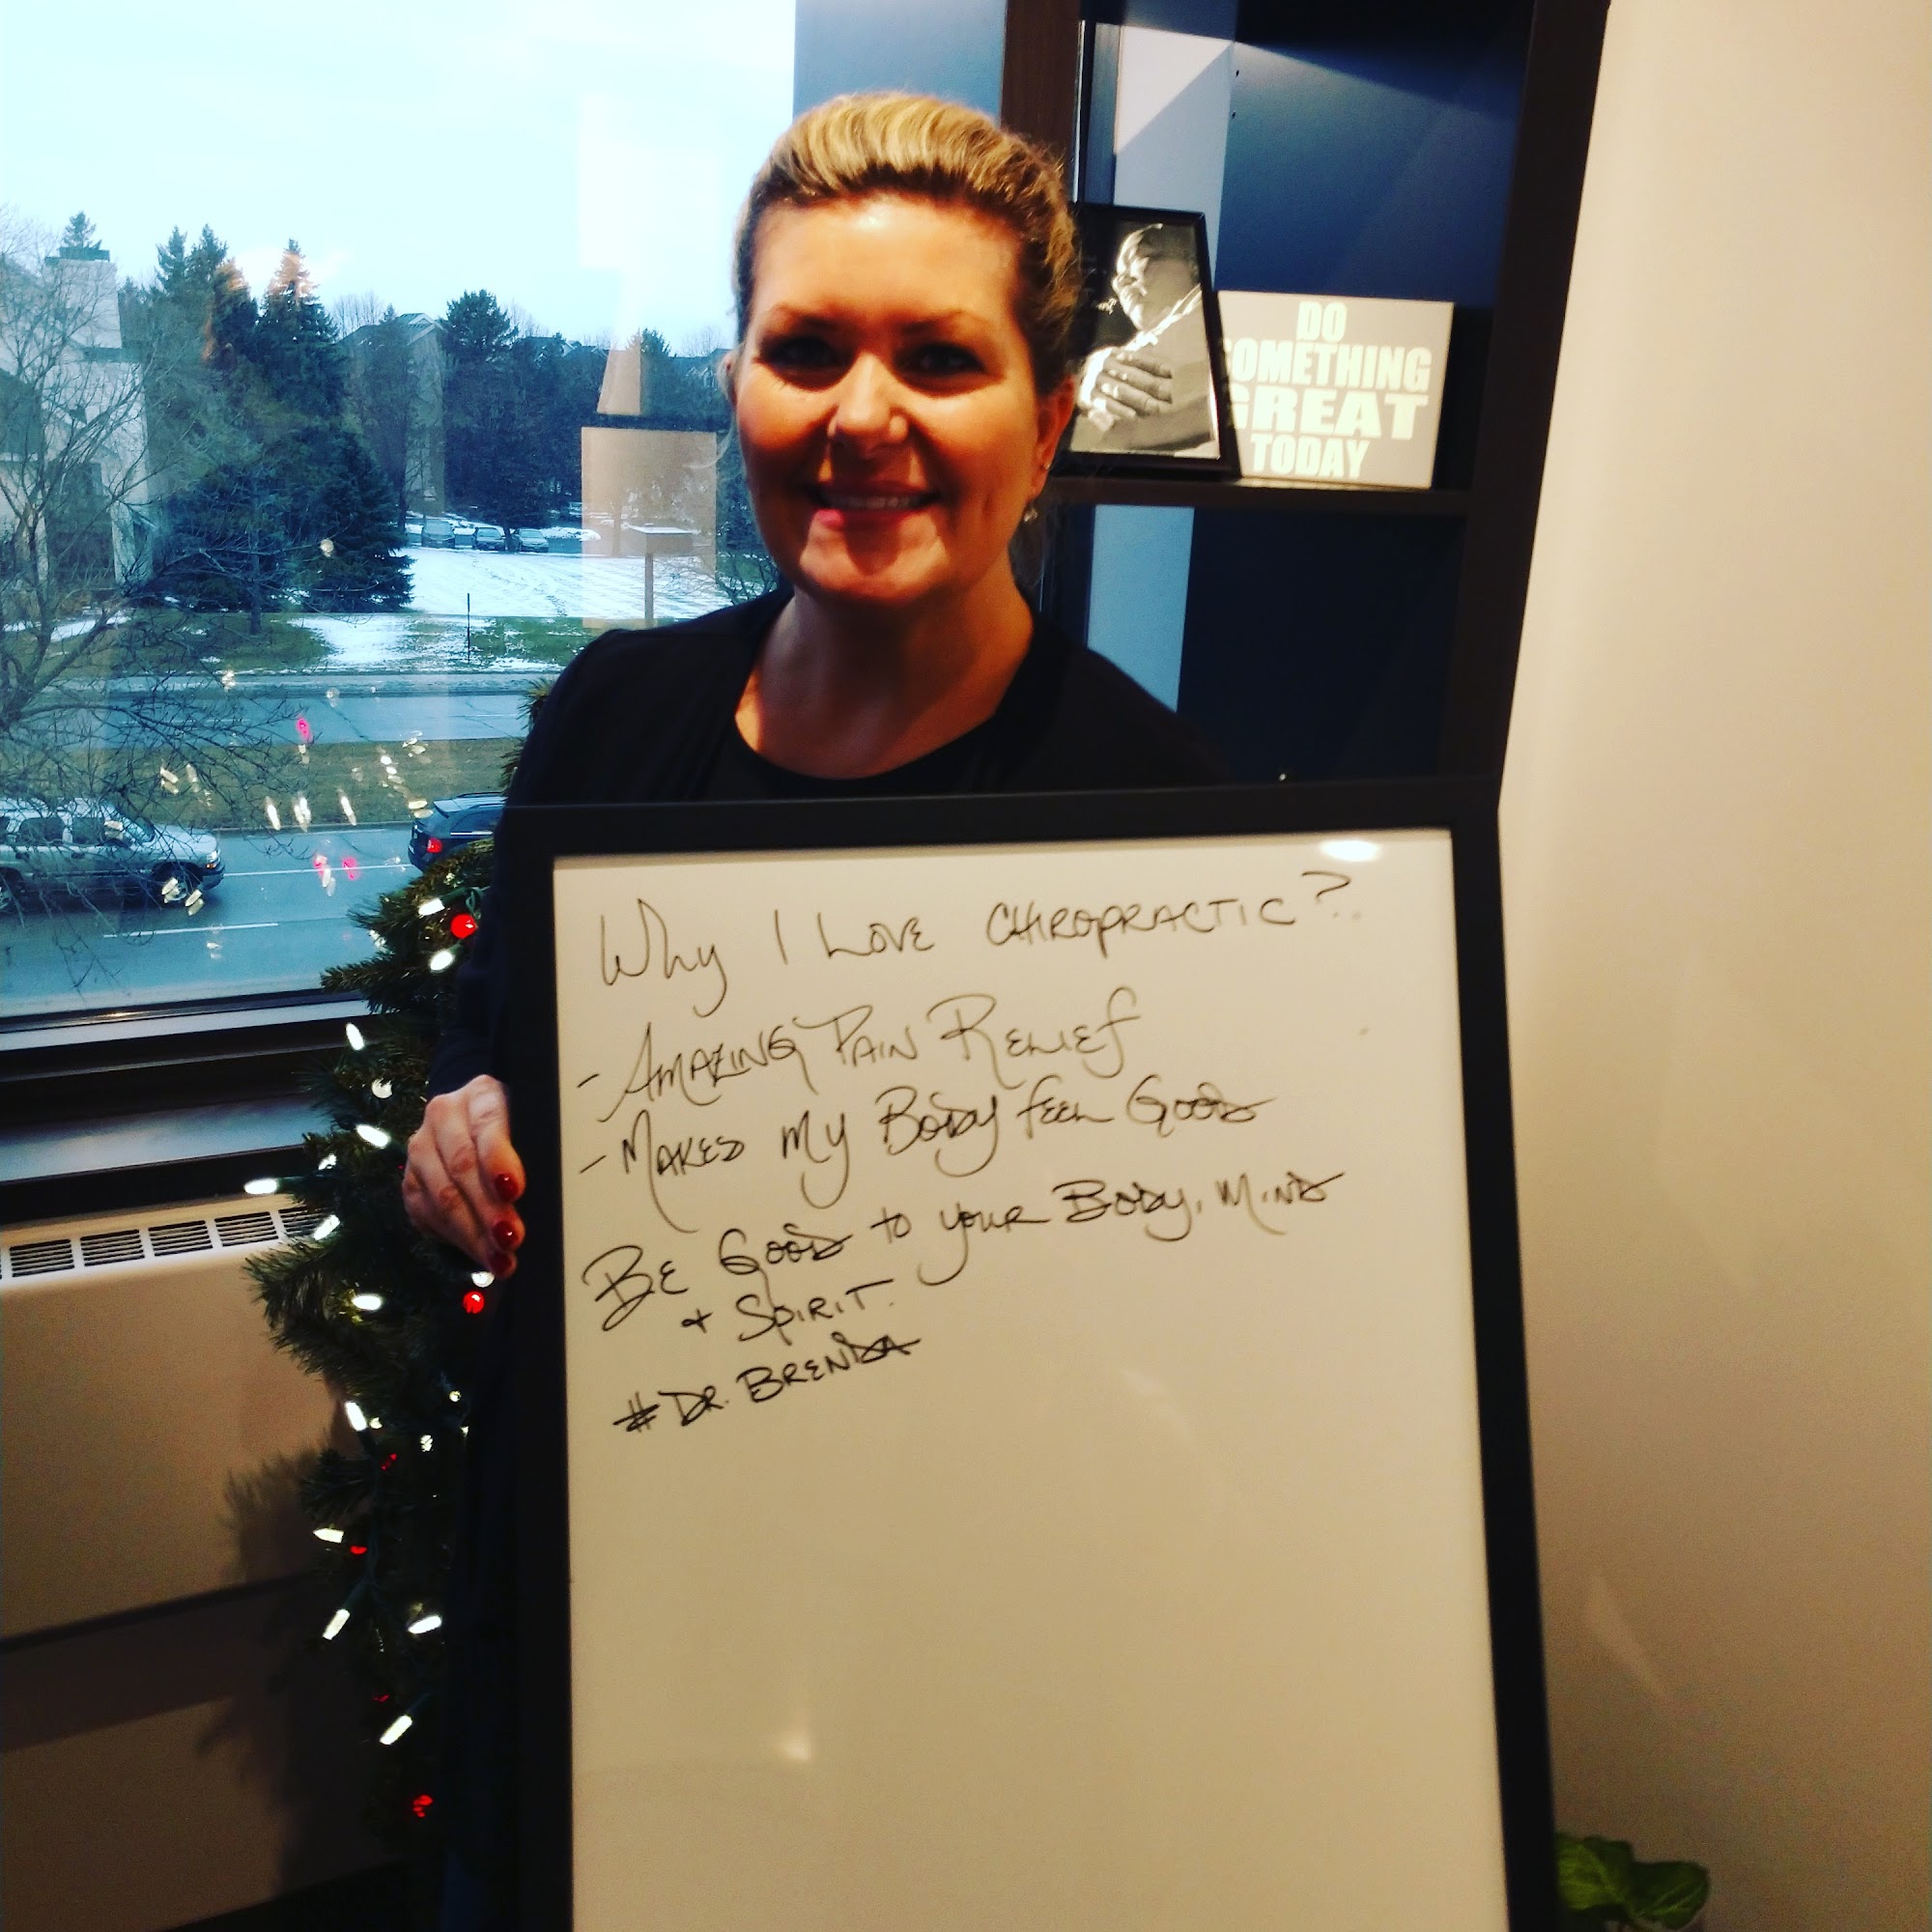 DO
SOMETHING
GREAT
TODAY
Why I LOVE CHIROPRACTIC?
- AMAZING PAIN RELIEF
- MAKES MY BODY FEEL GOOD
BE GOOD to your BODY, MIND
+ SPIRIT.
# DR. BRENDA